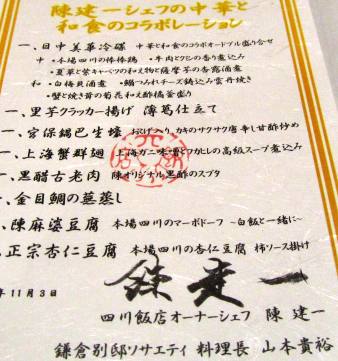 陳建一シェフの中華と
和食のコラボレーション
一、日中美華冷碟 中華と和食のコラボオードブル盛り合せ
中・本場四川の棒棒鶏 ・牛肉とクシの香り煮込み
・夏草と紫キャベツの和え物と薩摩芋の香露酒煮
和・白梅貝酒煮 ・鰯つみれチーズ鋳込み雲丹焼き
・蟹と焼き茸の菊花和え酢橘釜盛り
一、里芋クラッカー揚げ 薄葛仕立て
一、宮保鍋巴生蠔 おこげ入り カキのサクサク店 辛し甘酢炒め
一、上海蟹群翅 上海カニ味噌とフカヒレの高級スープ煮込み
一、黒醋古老肉 陳オリジナル黒酢のスブタ
一、金目鯛の蕪蒸し
、陳麻婆豆腐 本場四川のマーボドーフ ~白飯と一緒に~
、正宗杏仁豆腐 本場四川の杏仁豆腐 柿ソース掛け
年11月3日
陳建一
四川飯店オーナーシェフ 陳 建一
鎌倉別邸ソサエティ 料理長 山本貴裕